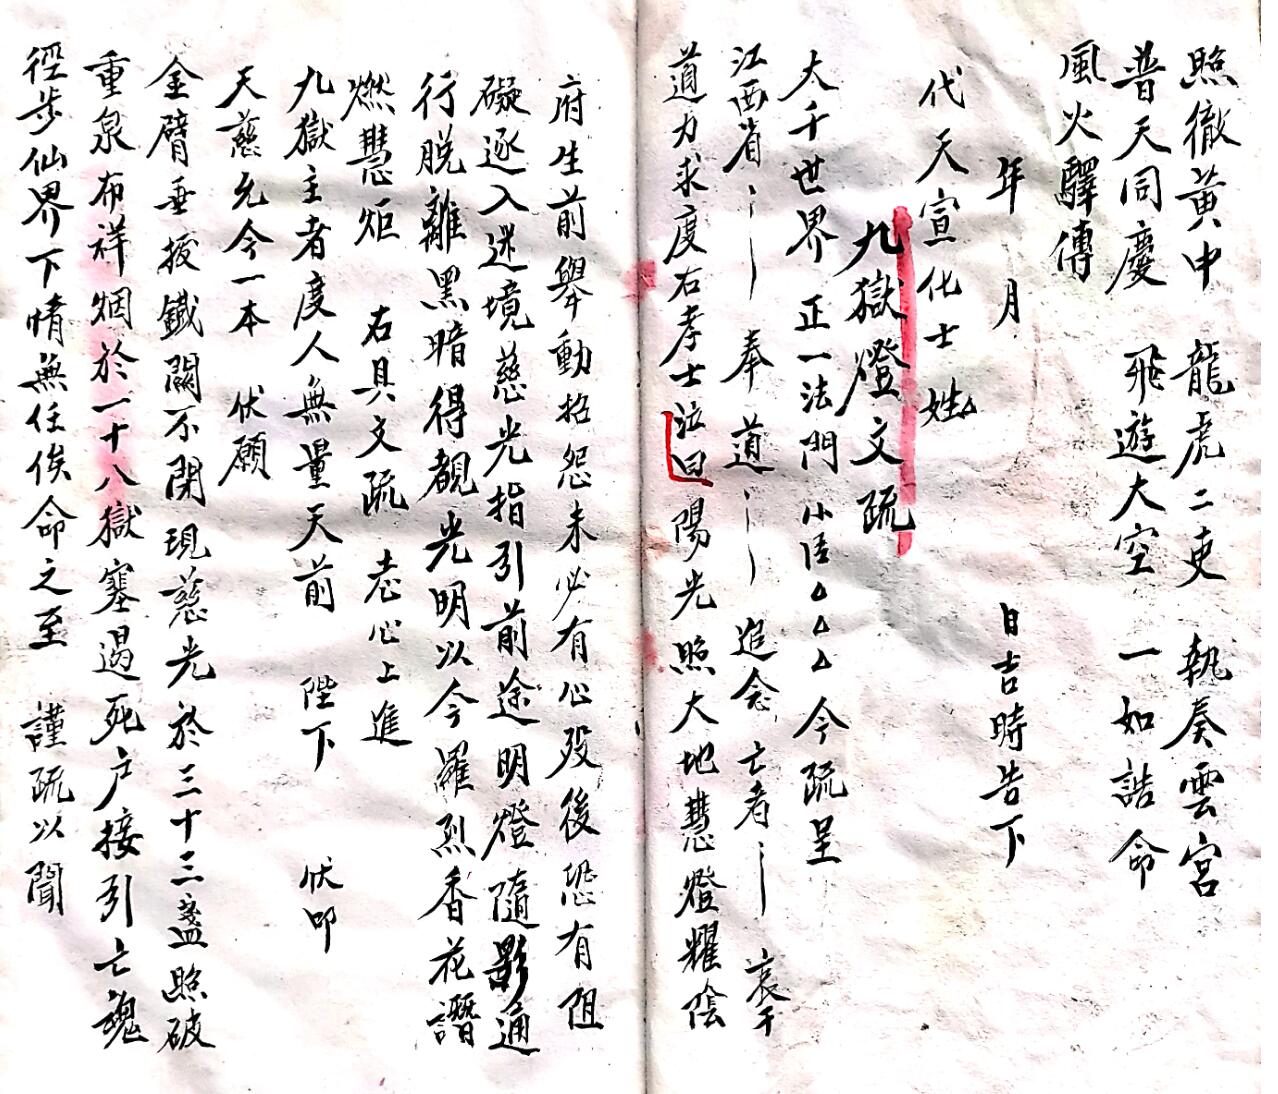 照徹黃中　龍虎二吏　執奏雲宮
普天同慶　飛遊大空　一如誥命
風火驛傳
年　月　　日吉時告下
代天宣化士　姓△
九獄燈文疏
大千世界　正一法門　小臣△△△今疏呈
江西省　奉道　追念　亡者　哀干
道力求度右孝士泣曰陽光照大地慧燈耀陰
府生前舉動招怨未必有心歿後恐有阻
礙逐入迷境慈光指引前途明燈隨影通
行脫離黑暗得覩光明以今羅烈香花譖
燃慧炬　右具文疏　志心上進
九獄主者度人無量天前　陛下　伏叩
天慈允今一本　伏願
金臂垂掖鐵關不閉現慈光於三十三盞照破
重泉布祥烟於一十八獄塞遏死户接引亡魂
徑步仙界下情無任俟命之至　謹疏以聞